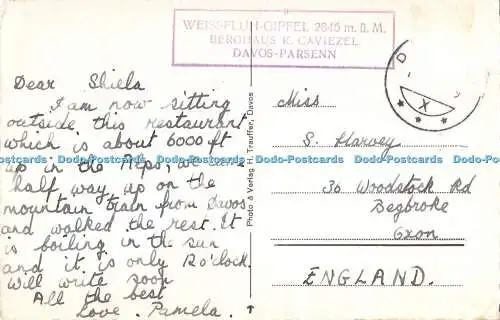 WEISSFLUH-GIPFEL 2845 m. ü. M.
BERGHAUS K. CAVIEZEL
DAVOS-PARSENN
Dear Shiela
I am now sitting
outside this restaurant
which is about 6000 ft
up in the Alps, we went
half way up on the
mountain train from Davos
and walked the rest. It
is boiling in the sun
and it is only 12 o'clock.
Will write soon
All the best
Love. Pamela.
Photo & Verlag H. Trauffer, Davos
Miss
S. Harvey
30 Woodstock Rd
Begbroke
Oxon
ENGLAND.
D
X
Dodo-Postcards Dodo-Postcards Dodo-Postcards Dodo-Postcards Dodo-Postcards Dodo-Postcards